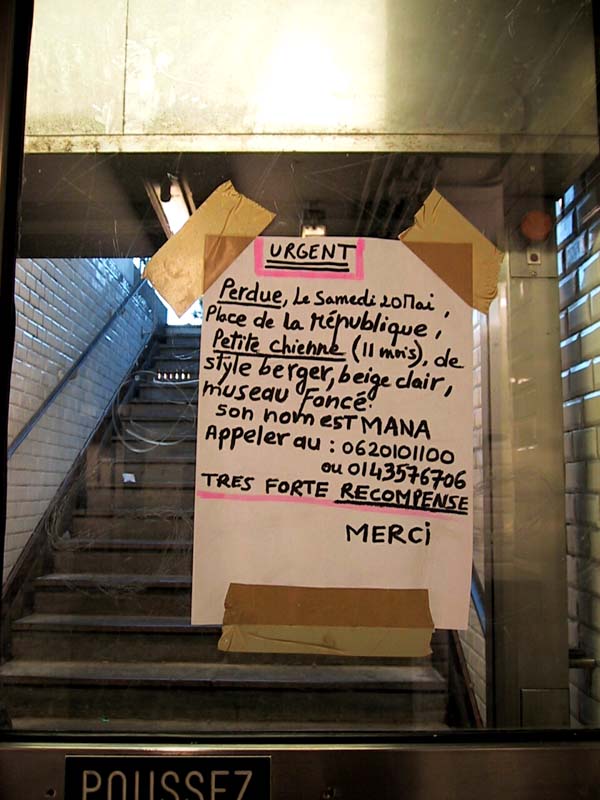 URGENT
Perdue, Le Samedi 20 Mai,
Place de la République,
Petite chienne (11 mois), de
style berger, beige clair,
museau Foncé.
son nom esT MANA
Appeler au : 0620101100
ou 0143576706
TRES FORTE RECOMPENSE
MERCi
POUSSEZ